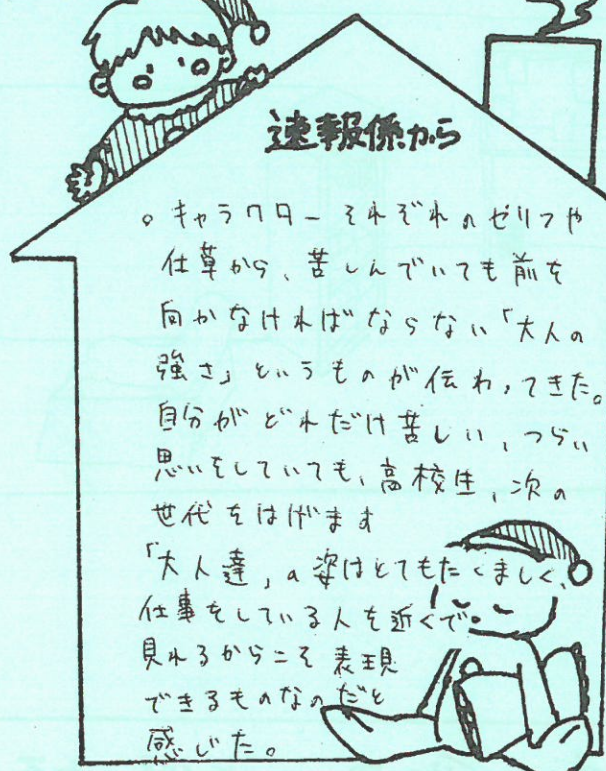 速報係から
○キャラクター それぞれのゼリフや
仕草から、苦しんでいても前を
向かなければならない「大人の
強さ」というものが伝わってきた。
自分がどれだけ苦しい、つらい
思いをしていても、高校生、次の
世代をはげます
「大人達」の姿はとてもたくましく、
仕事をしている人を近くで
見れるからこそ表現
できるものなのだと
感じた。